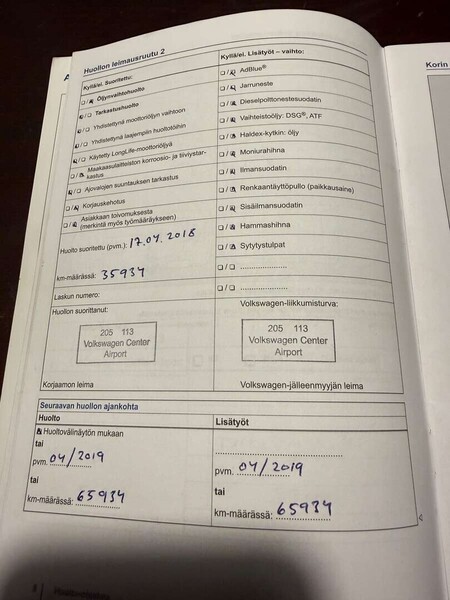 Huollon leimausruutu 2
Kyllä/ei. Suoritettu:
Öljynvaihtohuolto
Tarkastushuolto
Yhdistettynä moottoriöljyn vaihtoon
Yhdistettynä laajempiin huoltotöihin
Käytetty LongLife-moottoriöljyä
Maakaasulaitteiston korroosio- ja tiiviystar-
kastus
Ajovalojen suuntauksen tarkastus
Korjauskehotus
Asiakkaan toivomuksesta
(merkintä myös työmääräykseen)
Huolto suoritettu (pvm.): 17.04.2018
km-määrässä: 35934
Laskun numero:
Huollon suorittanut:
205 113
Volkswagen Center
Airport
Korjaamon leima
Kyllä/ei. Lisätyöt – vaihto:
AdBlue®
Jarruneste
Dieselpolttonestesuodatin
Vaihteistoöljy: DSG®, ATF
Haldex-kytkin: öljy
Moniurahihna
Ilmansuodatin
Renkaantäyttöpullo (paikkausaine)
Sisäilmansuodatin
Hammashihna
Sytytystulpat
Volkswagen-liikkumisturva:
205 113
Volkswagen Center
Airport
Volkswagen-jälleenmyyjän leima
Seuraavan huollon ajankohta
Huolto
Huoltovälinäytön mukaan
tai
pvm. 04/2019
tai
km-määrässä: 65934
Lisätyöt
pvm. 04/2019
tai
km-määrässä: 65934
Korin
8